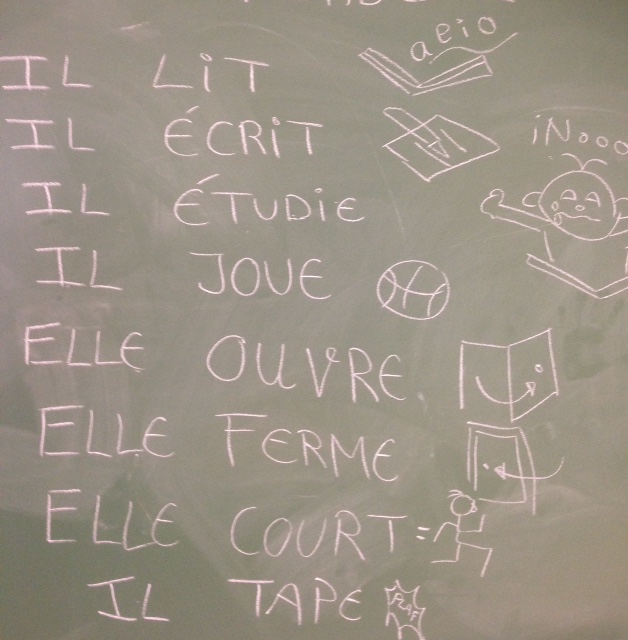 aeio
IL LiT
IL ÉCRiT
iNooo
IL ÉTUDiE
IL JOUE
ELLE OUVRE
ELLE FERME
ELLE COURT
IL TAPE
PLAF